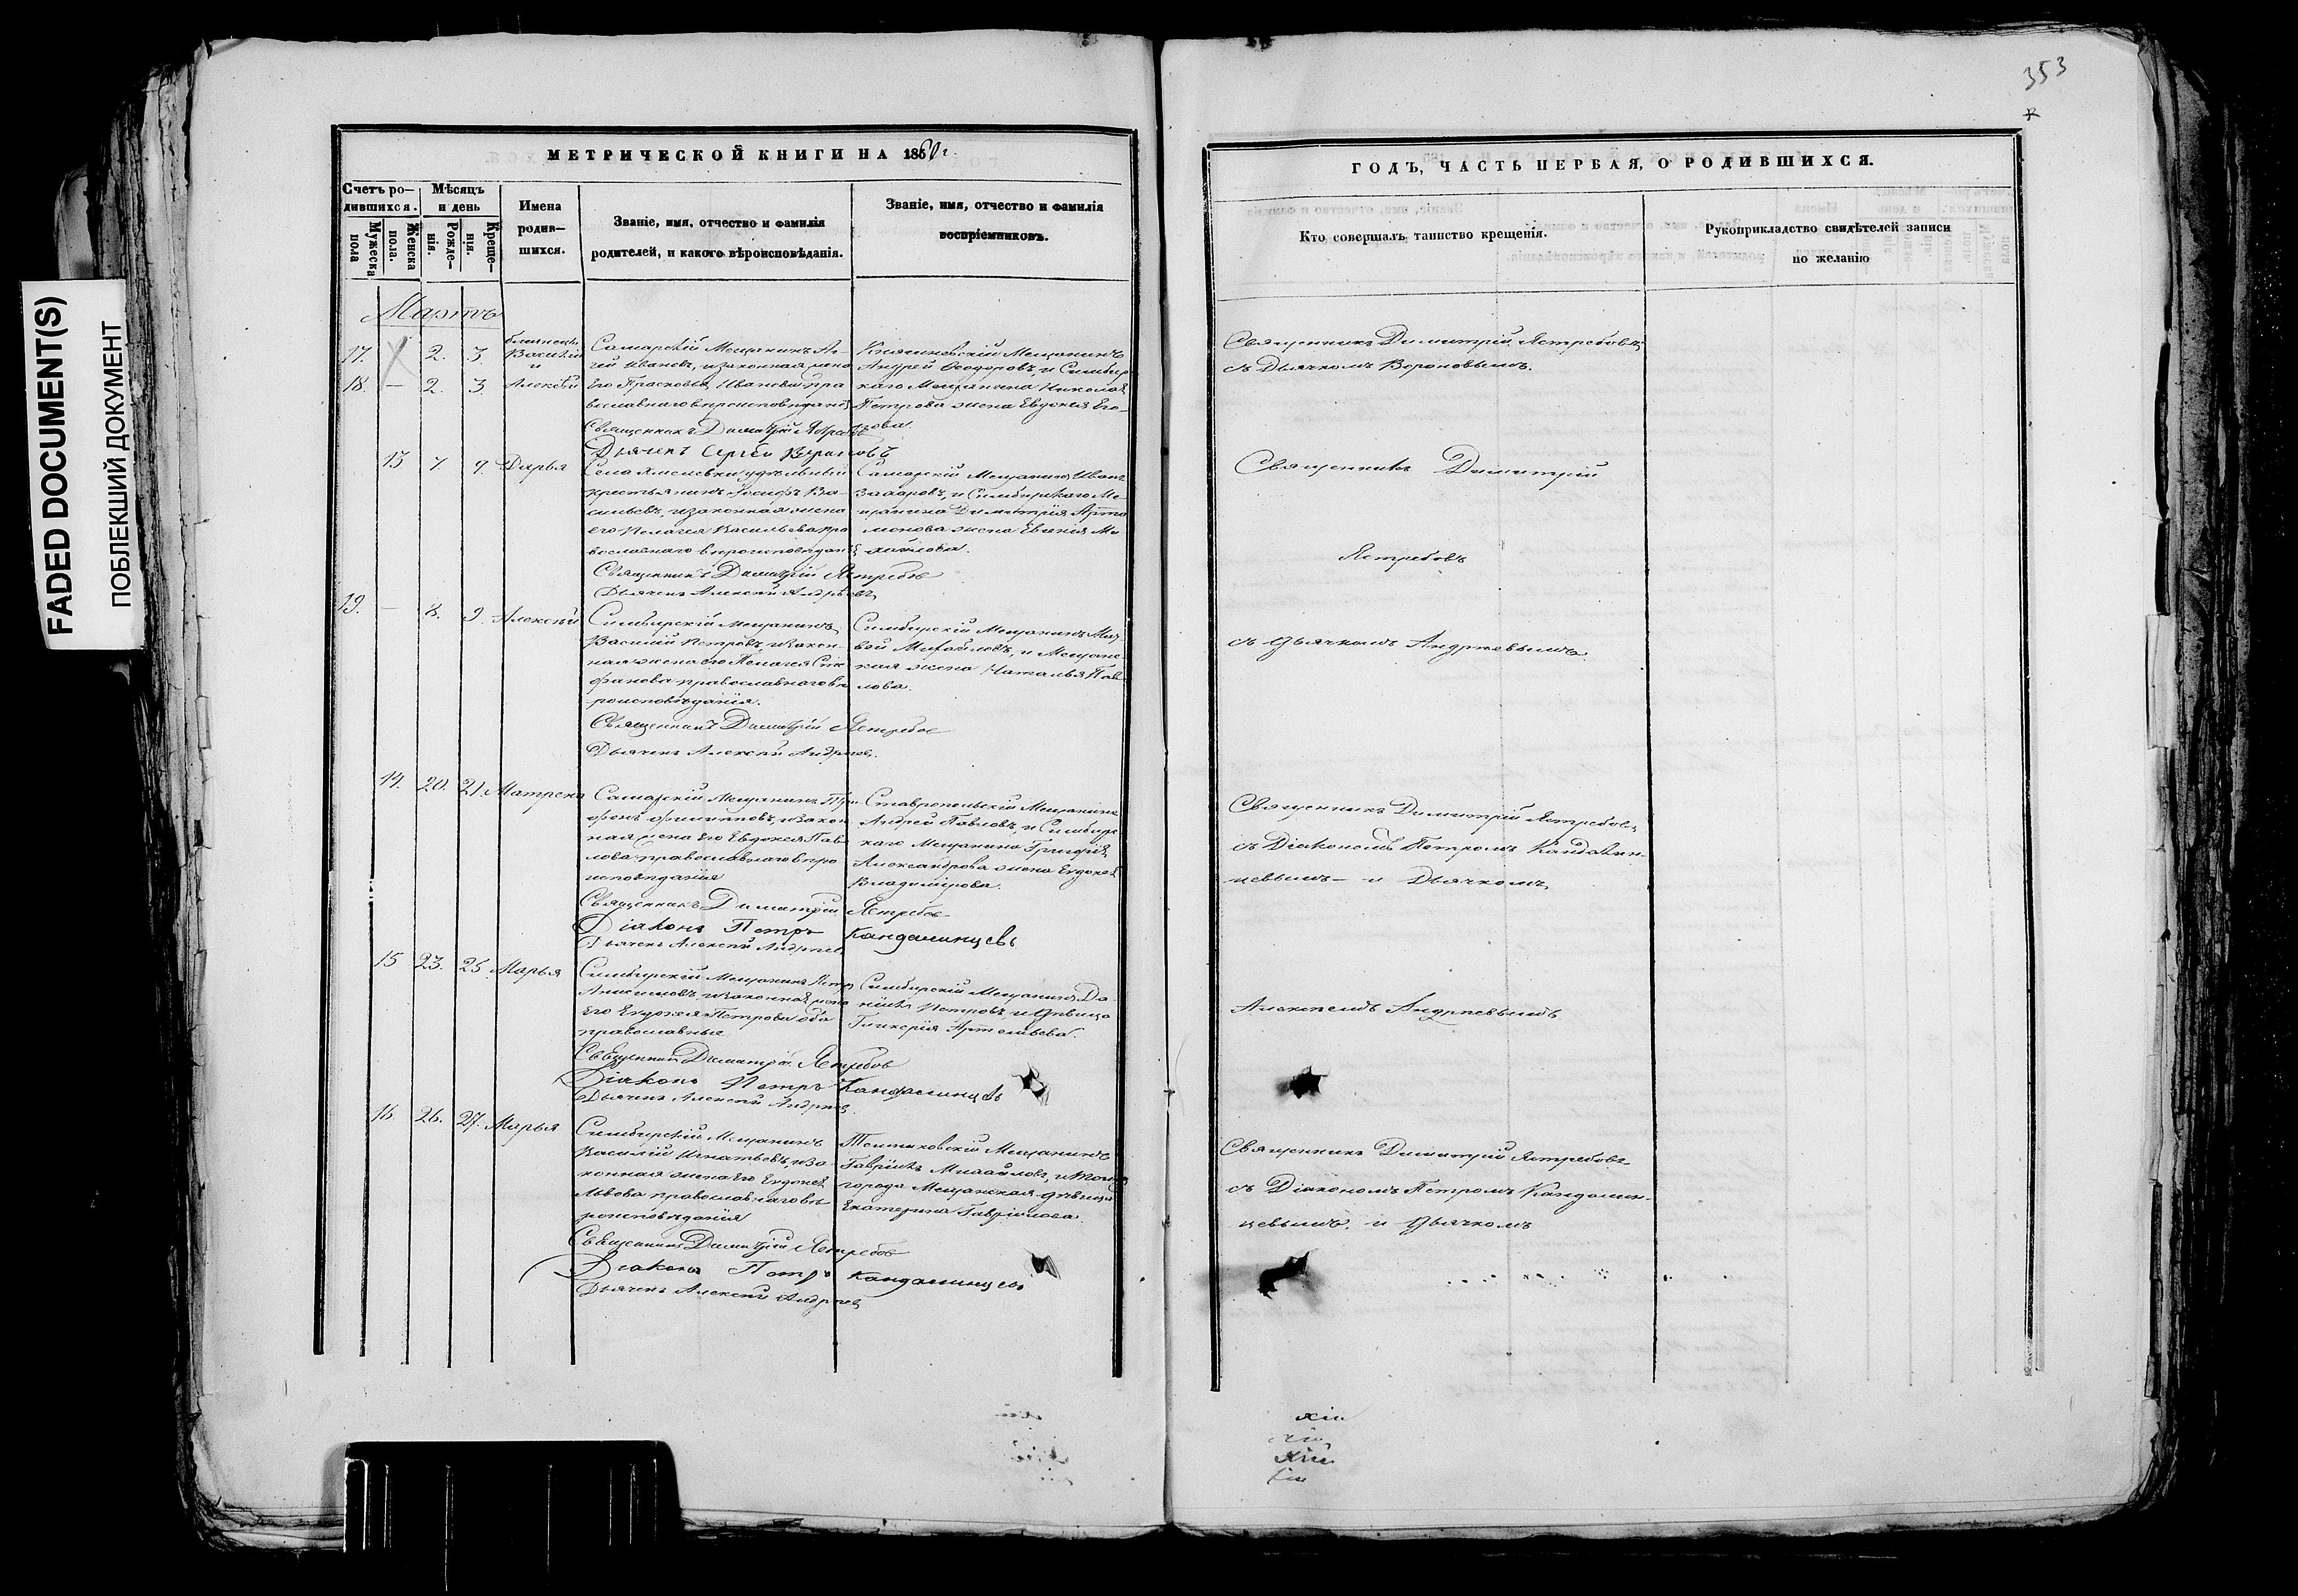 353
FADED DOCUMENT(S)
ПОБЛЕКШИЙ ДОКУМЕНТ
МЕТРИЧЕСКОЙ КНИГИ НА 1860 г.
Счетъ ро-
дившихся.
Мужеска
пола
Женска
пола.
Мѣсяцъ
и день
Рожде-
нія.
Креще-
нія.
Имена
родив-
шихся.
Званіе, имя, отчество и фамилія
родителей, и какого вѣроисповѣданія.
Званіе, имя, отчество и фамилія
воспріемниковъ.
Мартъ
17. 2. 3. близнецы Василій
и
18. — 2. 3. Алексѣй
Самарскій Мещанинъ
Ивановъ, и законная жена
Его Прасковья Иванова пра
вославнаго вѣроисповѣданія
Священникъ Димитрій Ястребовъ
Дьячекъ Сергей
Мещанинъ
Андрей Ѳеодоровъ, и Симбир
скаго Мещанина Николая
Петрова жена Евдокея Его-
рова.
13 7 9. Дарья
Села удѣльный
крестьянинъ Іосифъ Ва-
сильевъ, и законная жена
его Пелагея Васильева пра
вославнаго вѣроисповѣданія
Священникъ Димитрій Ястребовъ
Дьячекъ Алексѣй Андреевъ
Самарскій Мещанинъ Иванъ
Захаровъ, и Симбирскаго Ме-
щанина Димитрія Арта
монова жена Евгенія Ми
хайлова.
19. — 8. 9. Алексѣй
Симбирскій Мещанинъ
Василій Петровъ, и закон-
ная жена его Пелагея Сте
фанова православнаго вѣ
роисповѣданія.
Священникъ Димитрій Ястребовъ
Дьячекъ Алексѣй Андреевъ.
Симбирскій Мещанинъ Мат-
вей Михайловъ, и Мещанс
кая жена Наталья Пав-
лова.
14. 20. 21. Матрена
Самарскій Мещанинъ
Филипповъ, и закон
ная жена Его Евдокея Пав-
лова православнаго вѣро
исповѣданія
Священникъ Димитрій Ястребовъ
Діаконъ Петръ Кандалинцевъ
Дьячекъ Алексѣй Андреевъ
Ставропольскій Мещанинъ
Андрей Павловъ, и Симбирс
каго Мещанина Григорія
Александрова жена Евдокея
Владимірова.
15 23. 25 Марья
Симбирскій Мещанинъ Петръ
Анисимовъ, и законная жена
Его Евдокея Петрова оба
православные
Священникъ Димитрій Ястребовъ
Діаконъ Петръ Кандалинцевъ
Дьячекъ Алексѣй Андреевъ.
Симбирскій Мещанинъ Да-
ніилъ Петровъ, и дѣвица
Гликерія Артемьева.
16. 26. 27. Марья
Симбирскій Мещанинъ
Василій Игнатьевъ, и за-
конная жена Его Евдокея
Львова православнаго вѣ
роисповѣданія
Священникъ Димитрій Ястребовъ
Діаконъ Петръ Кандалинцевъ
Дьячекъ Алексѣй Андреевъ
Мещанинъ
Гавріилъ Михайловъ, и
города Мещанская дѣвица
Екатерина Гаврилова.
ГОДЪ, ЧАСТЬ ПЕРВАЯ, О РОДИВШИХСЯ.
Кто совершалъ таинство крещенія.
Рукоприкладство свидѣтелей записи
по желанію
Священникъ Димитрій Ястребовъ
съ Дьячкомъ Вороновымъ.
Священникъ Димитрій
Ястребовъ
съ Дьячкомъ Андреевымъ.
Священникъ Димитрій Ястребовъ
съ Діакономъ Петромъ Кандалин-
цевымъ — и Дьячкомъ
Алексѣемъ Андреевымъ
Священникъ Димитрій Ястребовъ
съ Діакономъ Петромъ Кандалин-
цевымъ. и Дьячкомъ